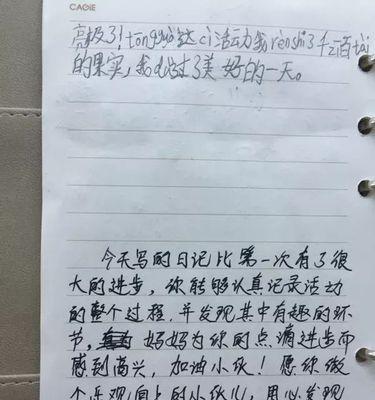 CAGIE
高极了!tongguò这ci活动我renshi了千zi百tài
的果实,我dù过了美好的一天。
今天写的日记比第一次有了很
大的进步,你能够认真记录活动
的整个过程,并发现其中有趣的环
节,妈妈为你的点滴进步而
感到高兴,加油小伙!愿你做
个乐观向上的小伙儿,用心发现